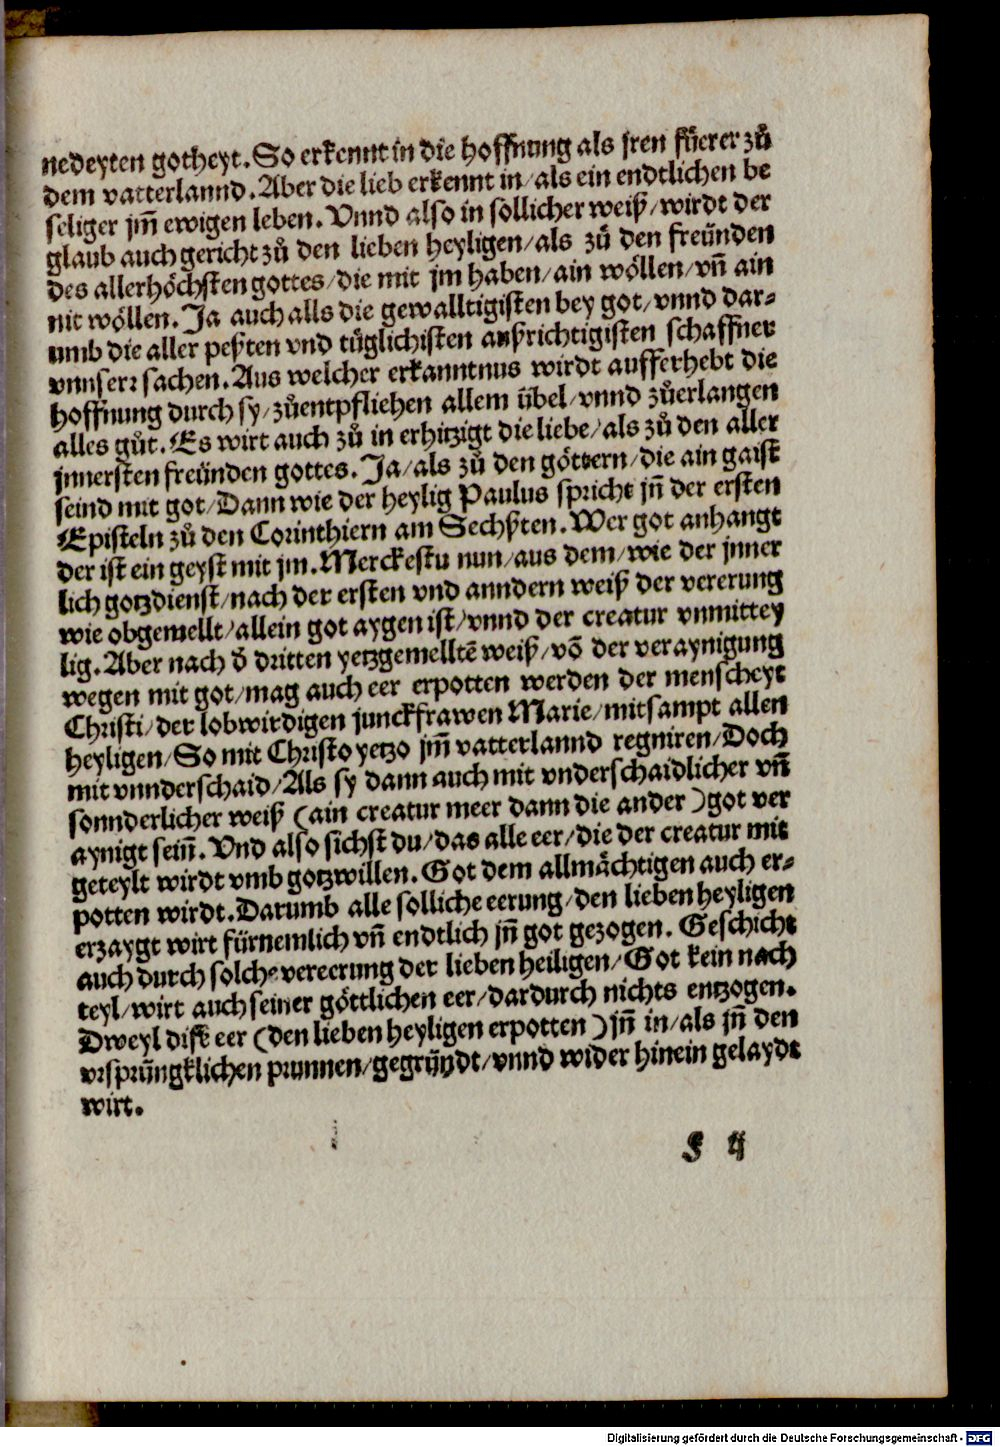 nedeyten gotheyt. So erkennt in die hoffnung als jren füerer zů
dem vatterlannd. Aber die lieb erkennt in/ als ein endtlichen be
seliger jm̄ ewigen leben. Vnnd also in söllicher weiß/ wirdt der
glaub auch gericht zů den lieben heyligen/ als zů den freünden
des allerhöchsten gottes/ die mit jm haben/ ain wöllen/ vn̄ ain
nit wöllen. Ja auch alls die gewalltigisten bey got/ vnnd dar⸗
umb die aller peßten vnd tüglichisten außrichtigisten schaffner
vnnserr sachen. Aus welcher erkanntnus wirdt aufferhebt die
hoffnung durch sy/ zůentpfliehen allem übel/ vnnd zůerlangen
alles gůt. Es wirt auch zů in erhitzigt die liebe/ als zů den aller
jnnersten freünden gottes. Ja/ als zů den göttern/ die ain gaist
seind mit got/ Dann wie der heylig Paulus spricht jn̄ der ersten
Episteln zů den Corinthiern am Sechßten. Wer got anhangt
der ist ein geyst mit jm. Merckestu nun/ aus dem/ wie der jnner
lich gotzdienst/ nach der ersten vnd anndern weiß der vererung
wie obgemellt/ allein got aygen ist/ vnnd der creatur vnmittey
lig. Aber nach d̄ dritten yetzgemelltē weiß/ vō der veraynigung
wegen mit got/ mag auch eer erpotten werden der menscheyt
Christi/ der lobwirdigen junckfrawen Marie/ mitsampt allen
heyligen/ So mit Christo yetzo jm̄ vatterlannd regniren/ Doch
mit vnnderschaid/ Als sy dann auch mit vnderschaidlicher vn̄
sonnderlicher weiß (ain creatur meer dann die ander) got ver
aynigt sein̄. Vnd also sichst du/ das alle eer/ die der creatur mit
geteylt wirdt vmb gotzwillen. Got dem allmächtigen auch er⸗
potten wirdt. Darumb alle solliche eerung/ den lieben heyligen
erzaygt wirt fürnemlich vn̄ endtlich jn̄ got gezogen. Geschicht
auch durch solche vereerung der lieben heiligen/ Got kein nach
teyl/ wirt auch seiner göttlichen eer/ dardurch nichts entzogen.
Dweyl dise eer (den lieben heyligen erpotten) jn̄ in/ als jn̄ den
vrsprüngklichen prunnen/ gegründt/ vnnd wider hinein gelaydt
wirt.
Digitalisierung gefördert durch die Deutsche Forschungsgemeinschaft - DFG